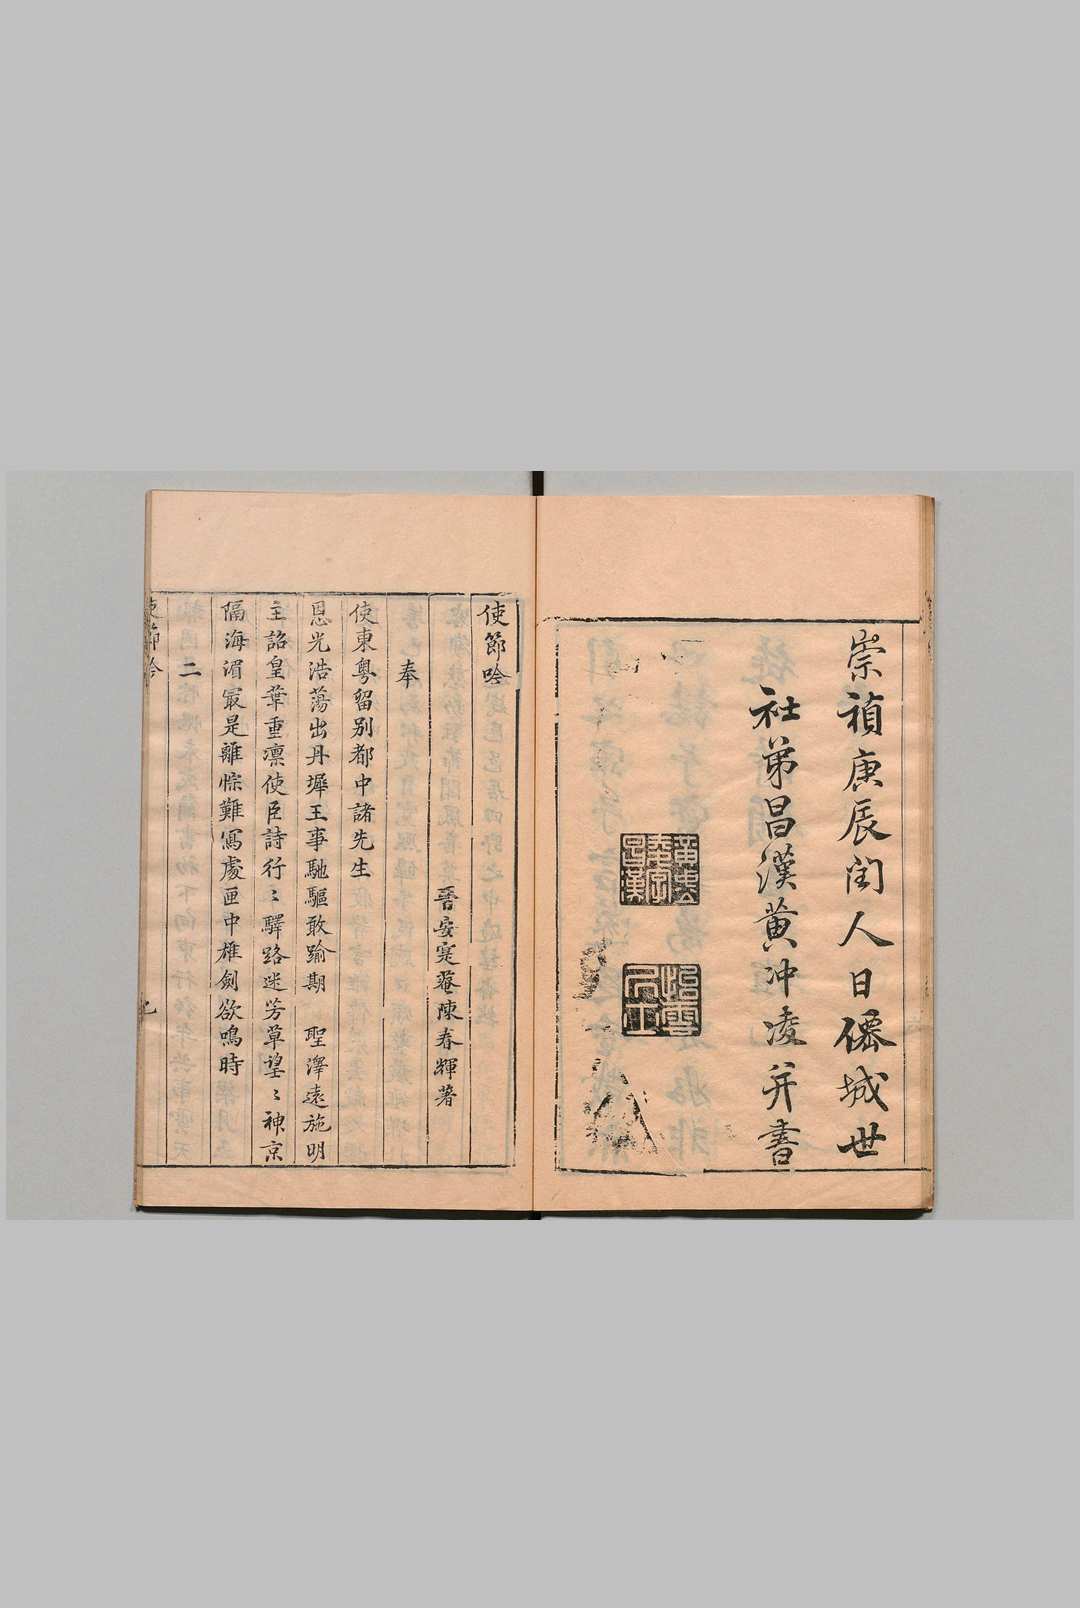 崇禎庚辰閏人日僊城世
社弟昌漢黃冲凌并書
使節吟
晉安寔菴陳春輝著
奉
使東粵留別都中諸先生
恩光浩蕩出丹墀王事馳驅敢踰期　聖澤遠施明
主詔皇華重凛使臣詩行〻驛路迷芳草望〻神京
隔海湄寂是離悰難寫處匣中雄劍欲鳴時
二
使節吟